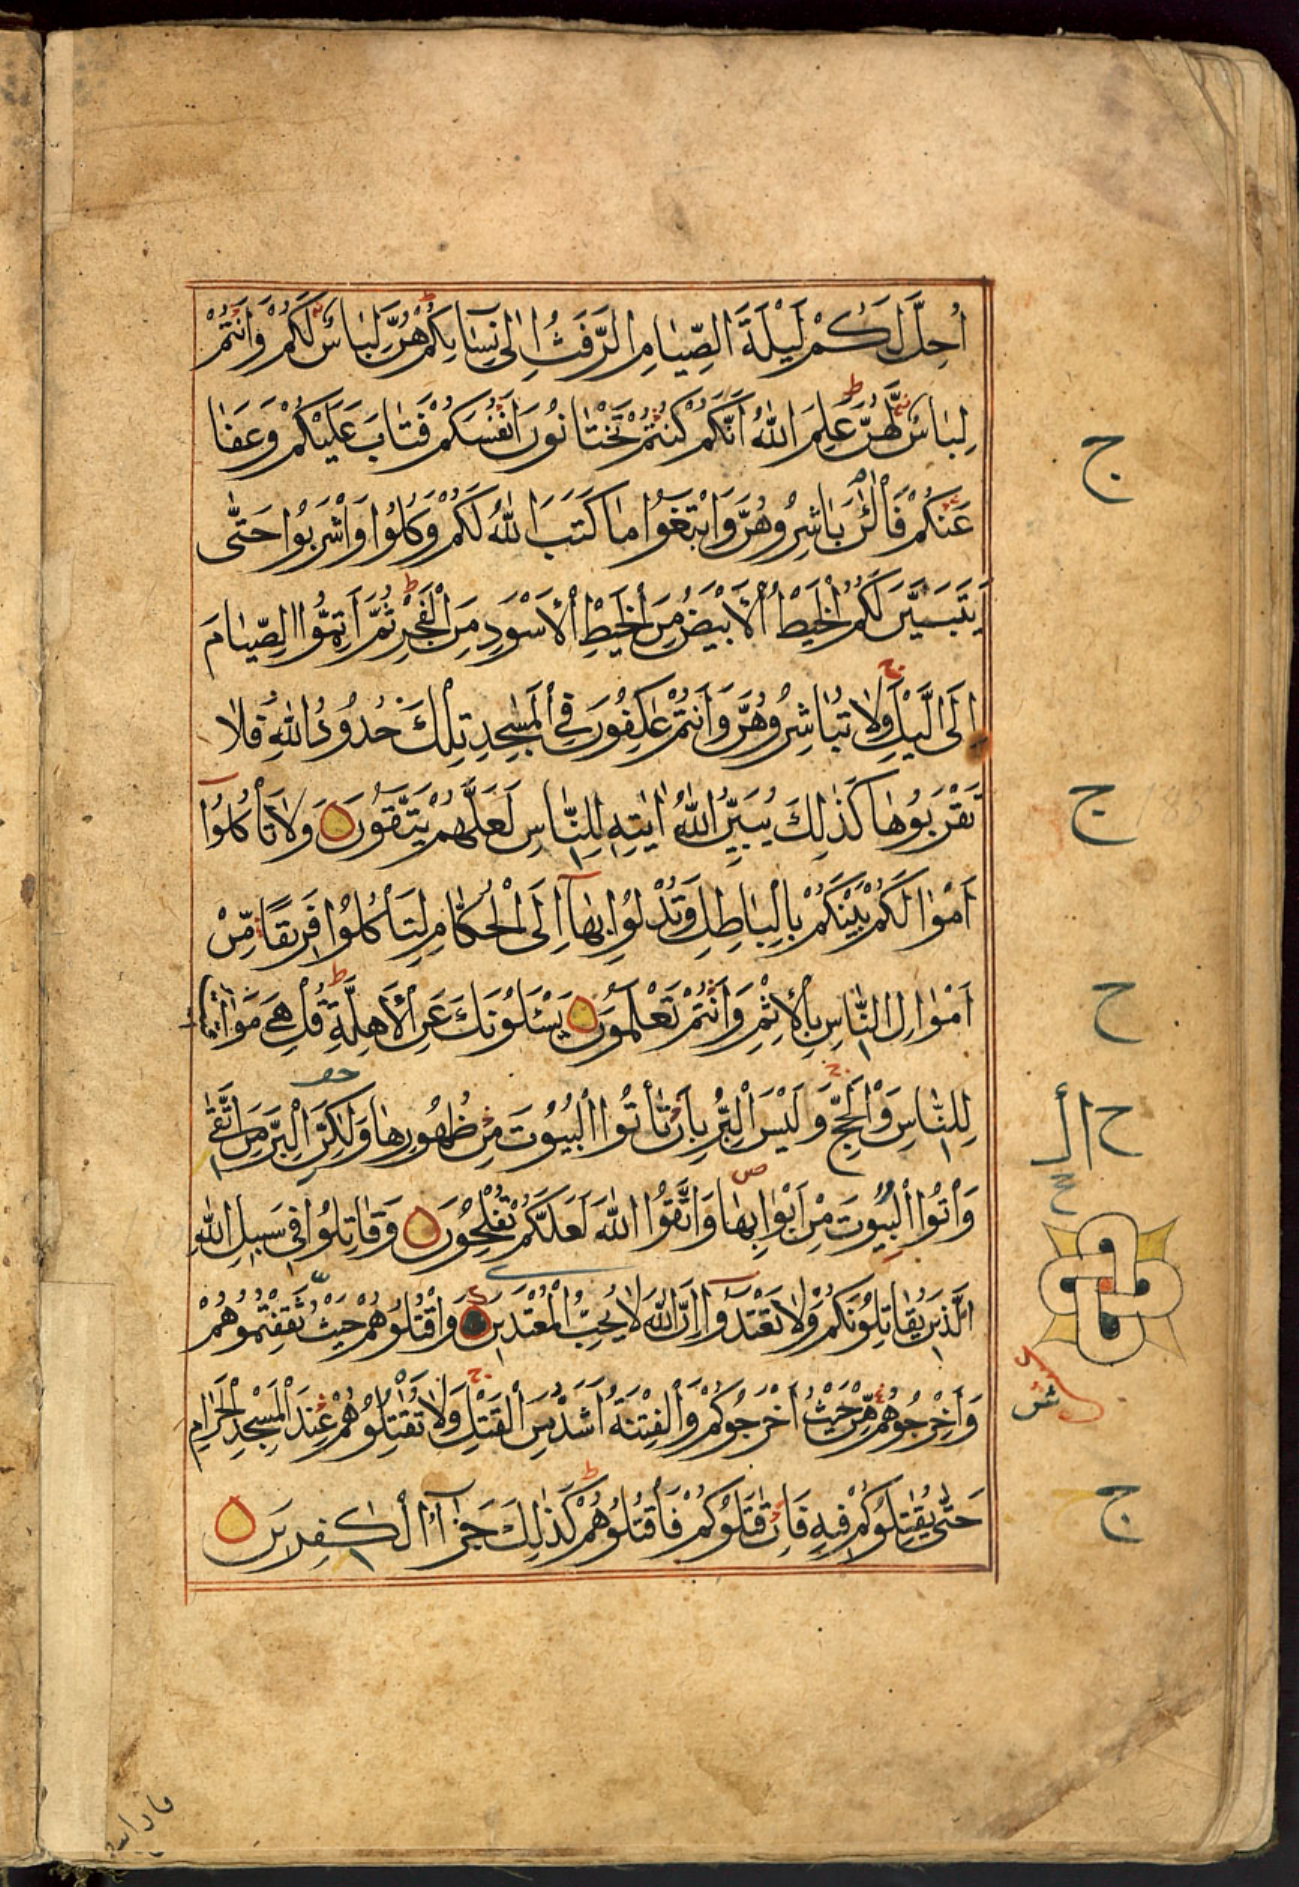 اُحِلَّ لَكُمْ لَيْلَةَ الصِّيَامِ الرَّفَثُ اِلٰى نِسَآىِٕكُمْ هُنَّ لِبَاسٌ لَكُمْ وَاَنْتُمْ
لِبَاسٌ لَهُنَّ عَلِمَ اللّٰهُ اَنَّكُمْ كُنْتُمْ تَخْتَانُونَ اَنْفُسَكُمْ فَتَابَ عَلَيْكُمْ وَعَفَا
عَنْكُمْ فَالْئٰنَ بَاشِرُوهُنَّ وَابْتَغُوا مَا كَتَبَ اللّٰهُ لَكُمْ وَكُلُوا وَاشْرَبُوا حَتّٰى
يَتَبَيَّنَ لَكُمُ الْخَيْطُ الْاَبْيَضُ مِنَ الْخَيْطِ الْاَسْوَدِ مِنَ الْفَجْرِ ثُمَّ اَتِمُّوا الصِّيَامَ
اِلَى الَّيْلِ وَلَا تُبَاشِرُوهُنَّ وَاَنْتُمْ عٰكِفُونَ فِى الْمَسٰجِدِ تِلْكَ حُدُودُ اللّٰهِ فَلَا
تَقْرَبُوهَا كَذٰلِكَ يُبَيِّنُ اللّٰهُ اٰيٰتِهٖ لِلنَّاسِ لَعَلَّهُمْ يَتَّقُونَ وَلَا تَأْكُلُوٓا
اَمْوَالَكُمْ بَيْنَكُمْ بِالْبَاطِلِ وَتُدْلُوا بِهَآ اِلَى الْحُكَّامِ لِتَأْكُلُوا فَرِيقًا مِّنْ
اَمْوَالِ النَّاسِ بِالْاِثْمِ وَاَنْتُمْ تَعْلَمُونَ يَسْـَٔلُونَكَ عَنِ الْاَهِلَّةِ قُلْ هِىَ مَوَاقِيتُ
لِلنَّاسِ وَالْحَجِّ وَلَيْسَ الْبِرُّ بِاَنْ تَأْتُوا الْبُيُوتَ مِنْ ظُهُورِهَا وَلٰكِنَّ الْبِرَّ مَنِ اتَّقٰى
وَأْتُوا الْبُيُوتَ مِنْ اَبْوَابِهَا وَاتَّقُوا اللّٰهَ لَعَلَّكُمْ تُفْلِحُونَ وَقَاتِلُوا فِى سَبِيلِ اللّٰهِ
الَّذِينَ يُقَاتِلُونَكُمْ وَلَا تَعْتَدُوٓا اِنَّ اللّٰهَ لَا يُحِبُّ الْمُعْتَدِينَ وَاقْتُلُوهُمْ حَيْثُ ثَقِفْتُمُوهُمْ
وَاَخْرِجُوهُمْ مِّنْ حَيْثُ اَخْرَجُوكُمْ وَالْفِتْنَةُ اَشَدُّ مِنَ الْقَتْلِ وَلَا تُقٰتِلُوهُمْ عِنْدَ الْمَسْجِدِ الْحَرَامِ
حَتّٰى يُقٰتِلُوكُمْ فِيهِ فَاِنْ قٰتَلُوكُمْ فَاقْتُلُوهُمْ كَذٰلِكَ جَزَآءُ الْكٰفِرِينَ
ج
ج
ح
ج